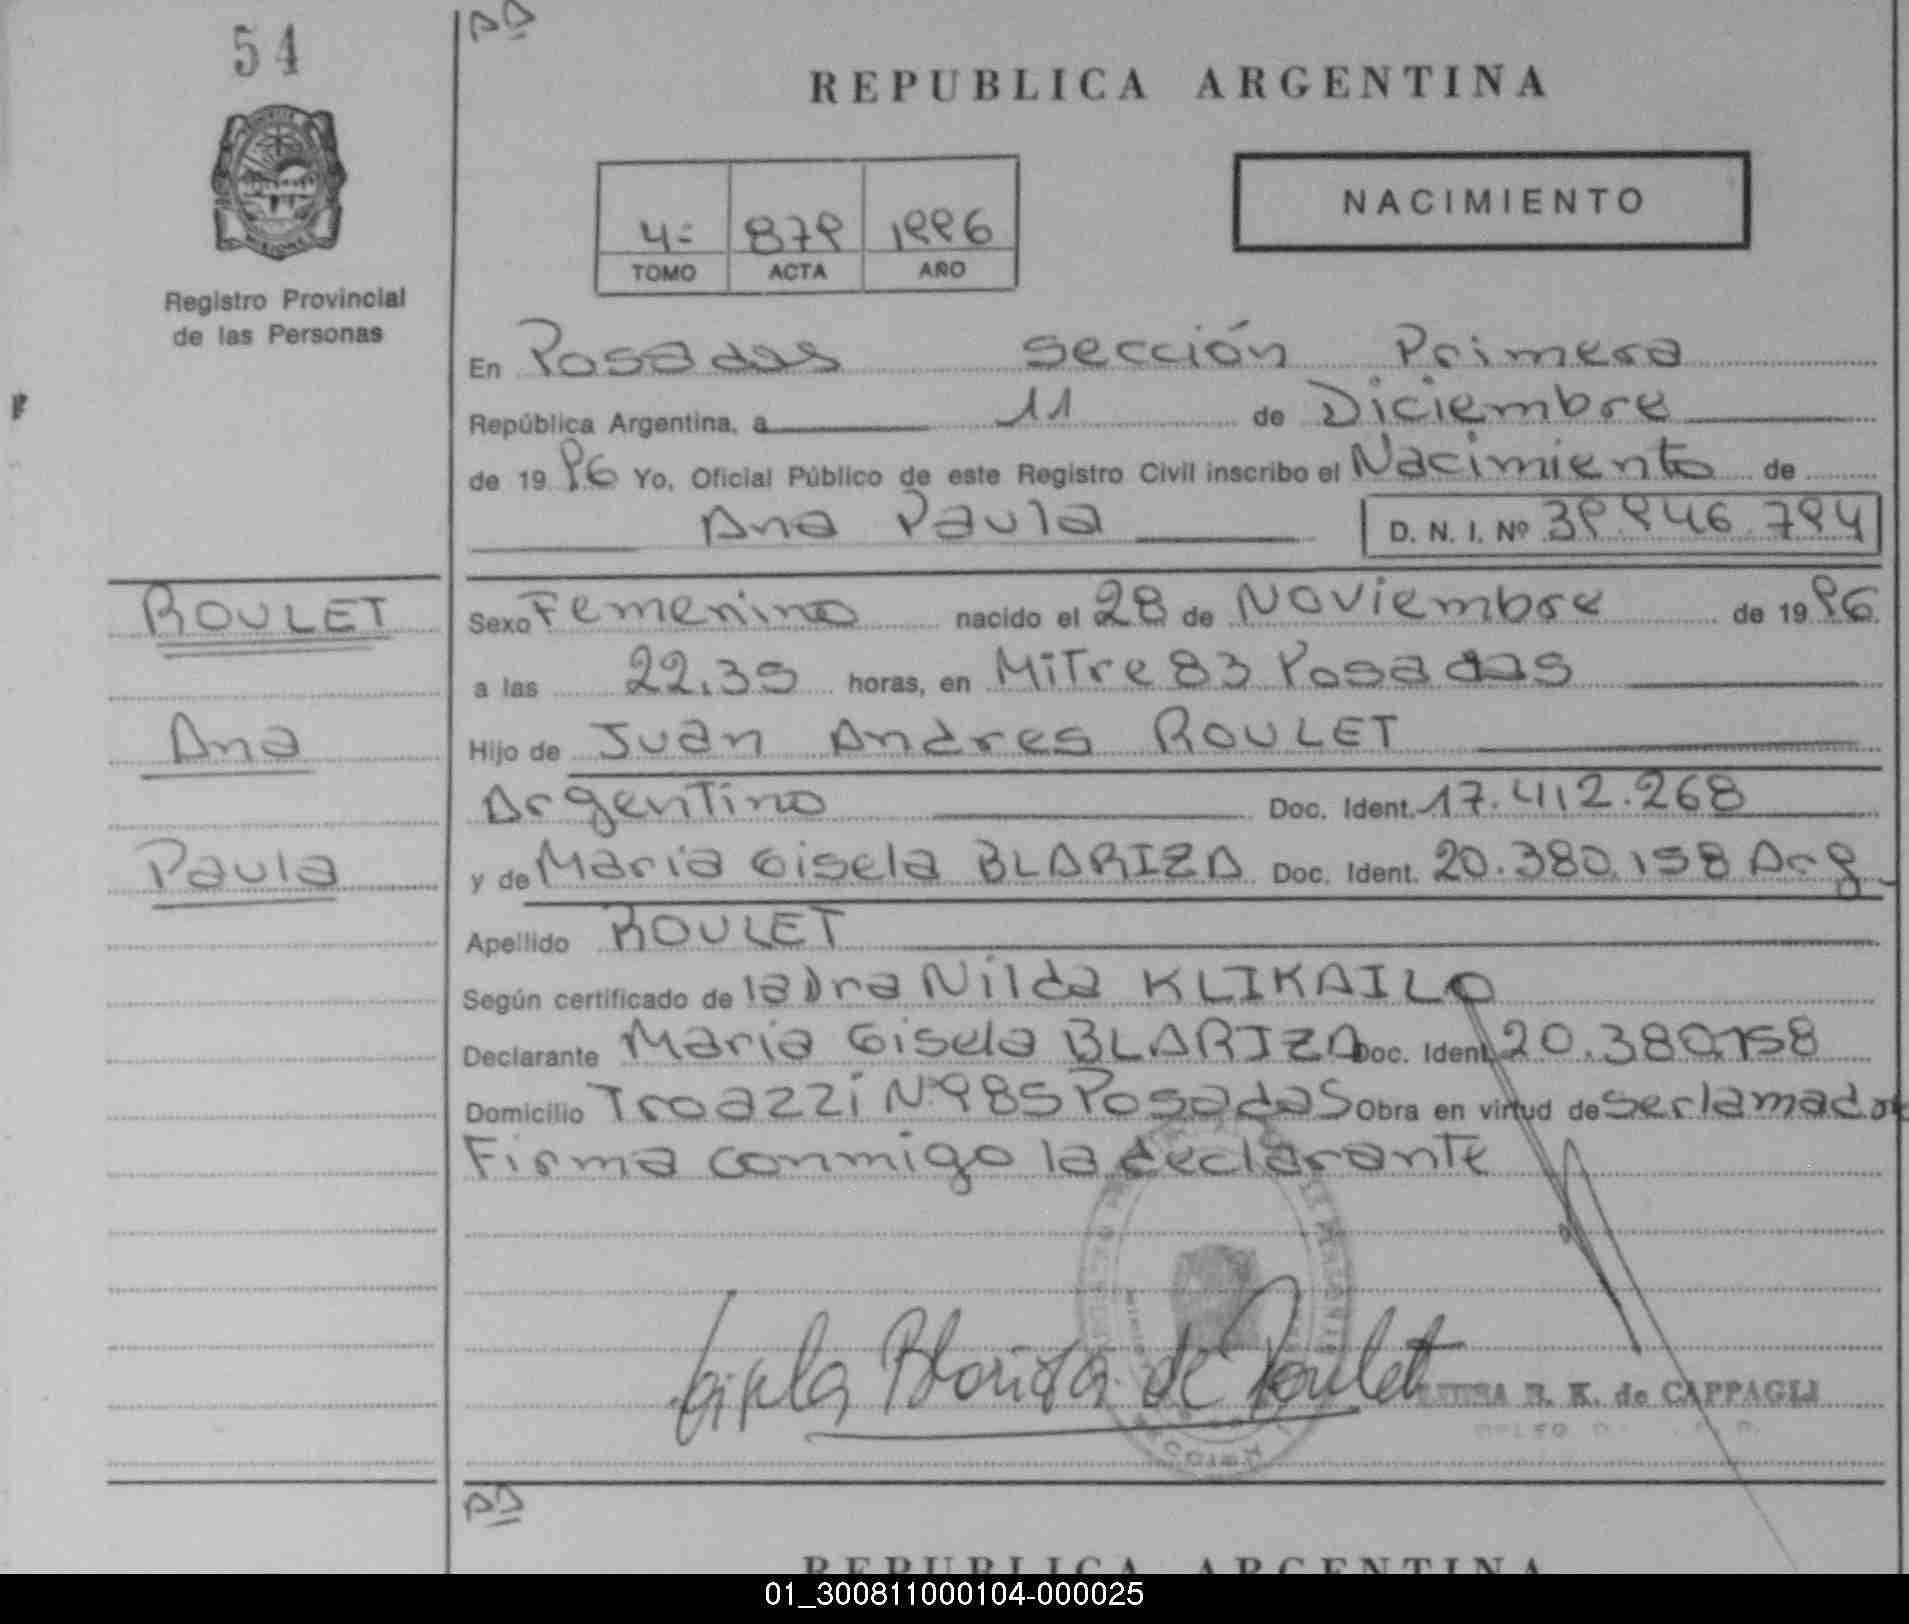 54
REPUBLICA ARGENTINA
NACIMIENTO
4= 879 1996
TOMO ACTA AÑO
Registro Provincial
de las Personas
En Posadas sección Primera
República Argentina, a 11 de Diciembre
de 1996 Yo, Oficial Público de este Registro Civil inscribo el Nacimiento de
Ana Paula D. N. I. Nº 39.946.794
ROULET
Ana
Paula
Sexo Femenino nacido el 28 de Noviembre de 1996.
a las 22.35 horas, en Mitre 83 Posadas
Hijo de Juan Andres ROULET
Argentino Doc. Ident. 17.412.268
y de Maria Gisela BLARIZA Doc. Ident. 20.380.158 Arg
Apellido ROULET
Según certificado de la Dra Nilda KLIKAILO
Declarante Maria Gisela BLARIZA Doc. Ident. 20.380.158
Domicilio Troazzi Nº 985 Posadas Obra en virtud de ser la madre
Firma conmigo la declarante
Gisela Blariza de Roulet
R. K. de CAPPAGLI
REPUBLICA ARGENTINA
01_300811000104-000025